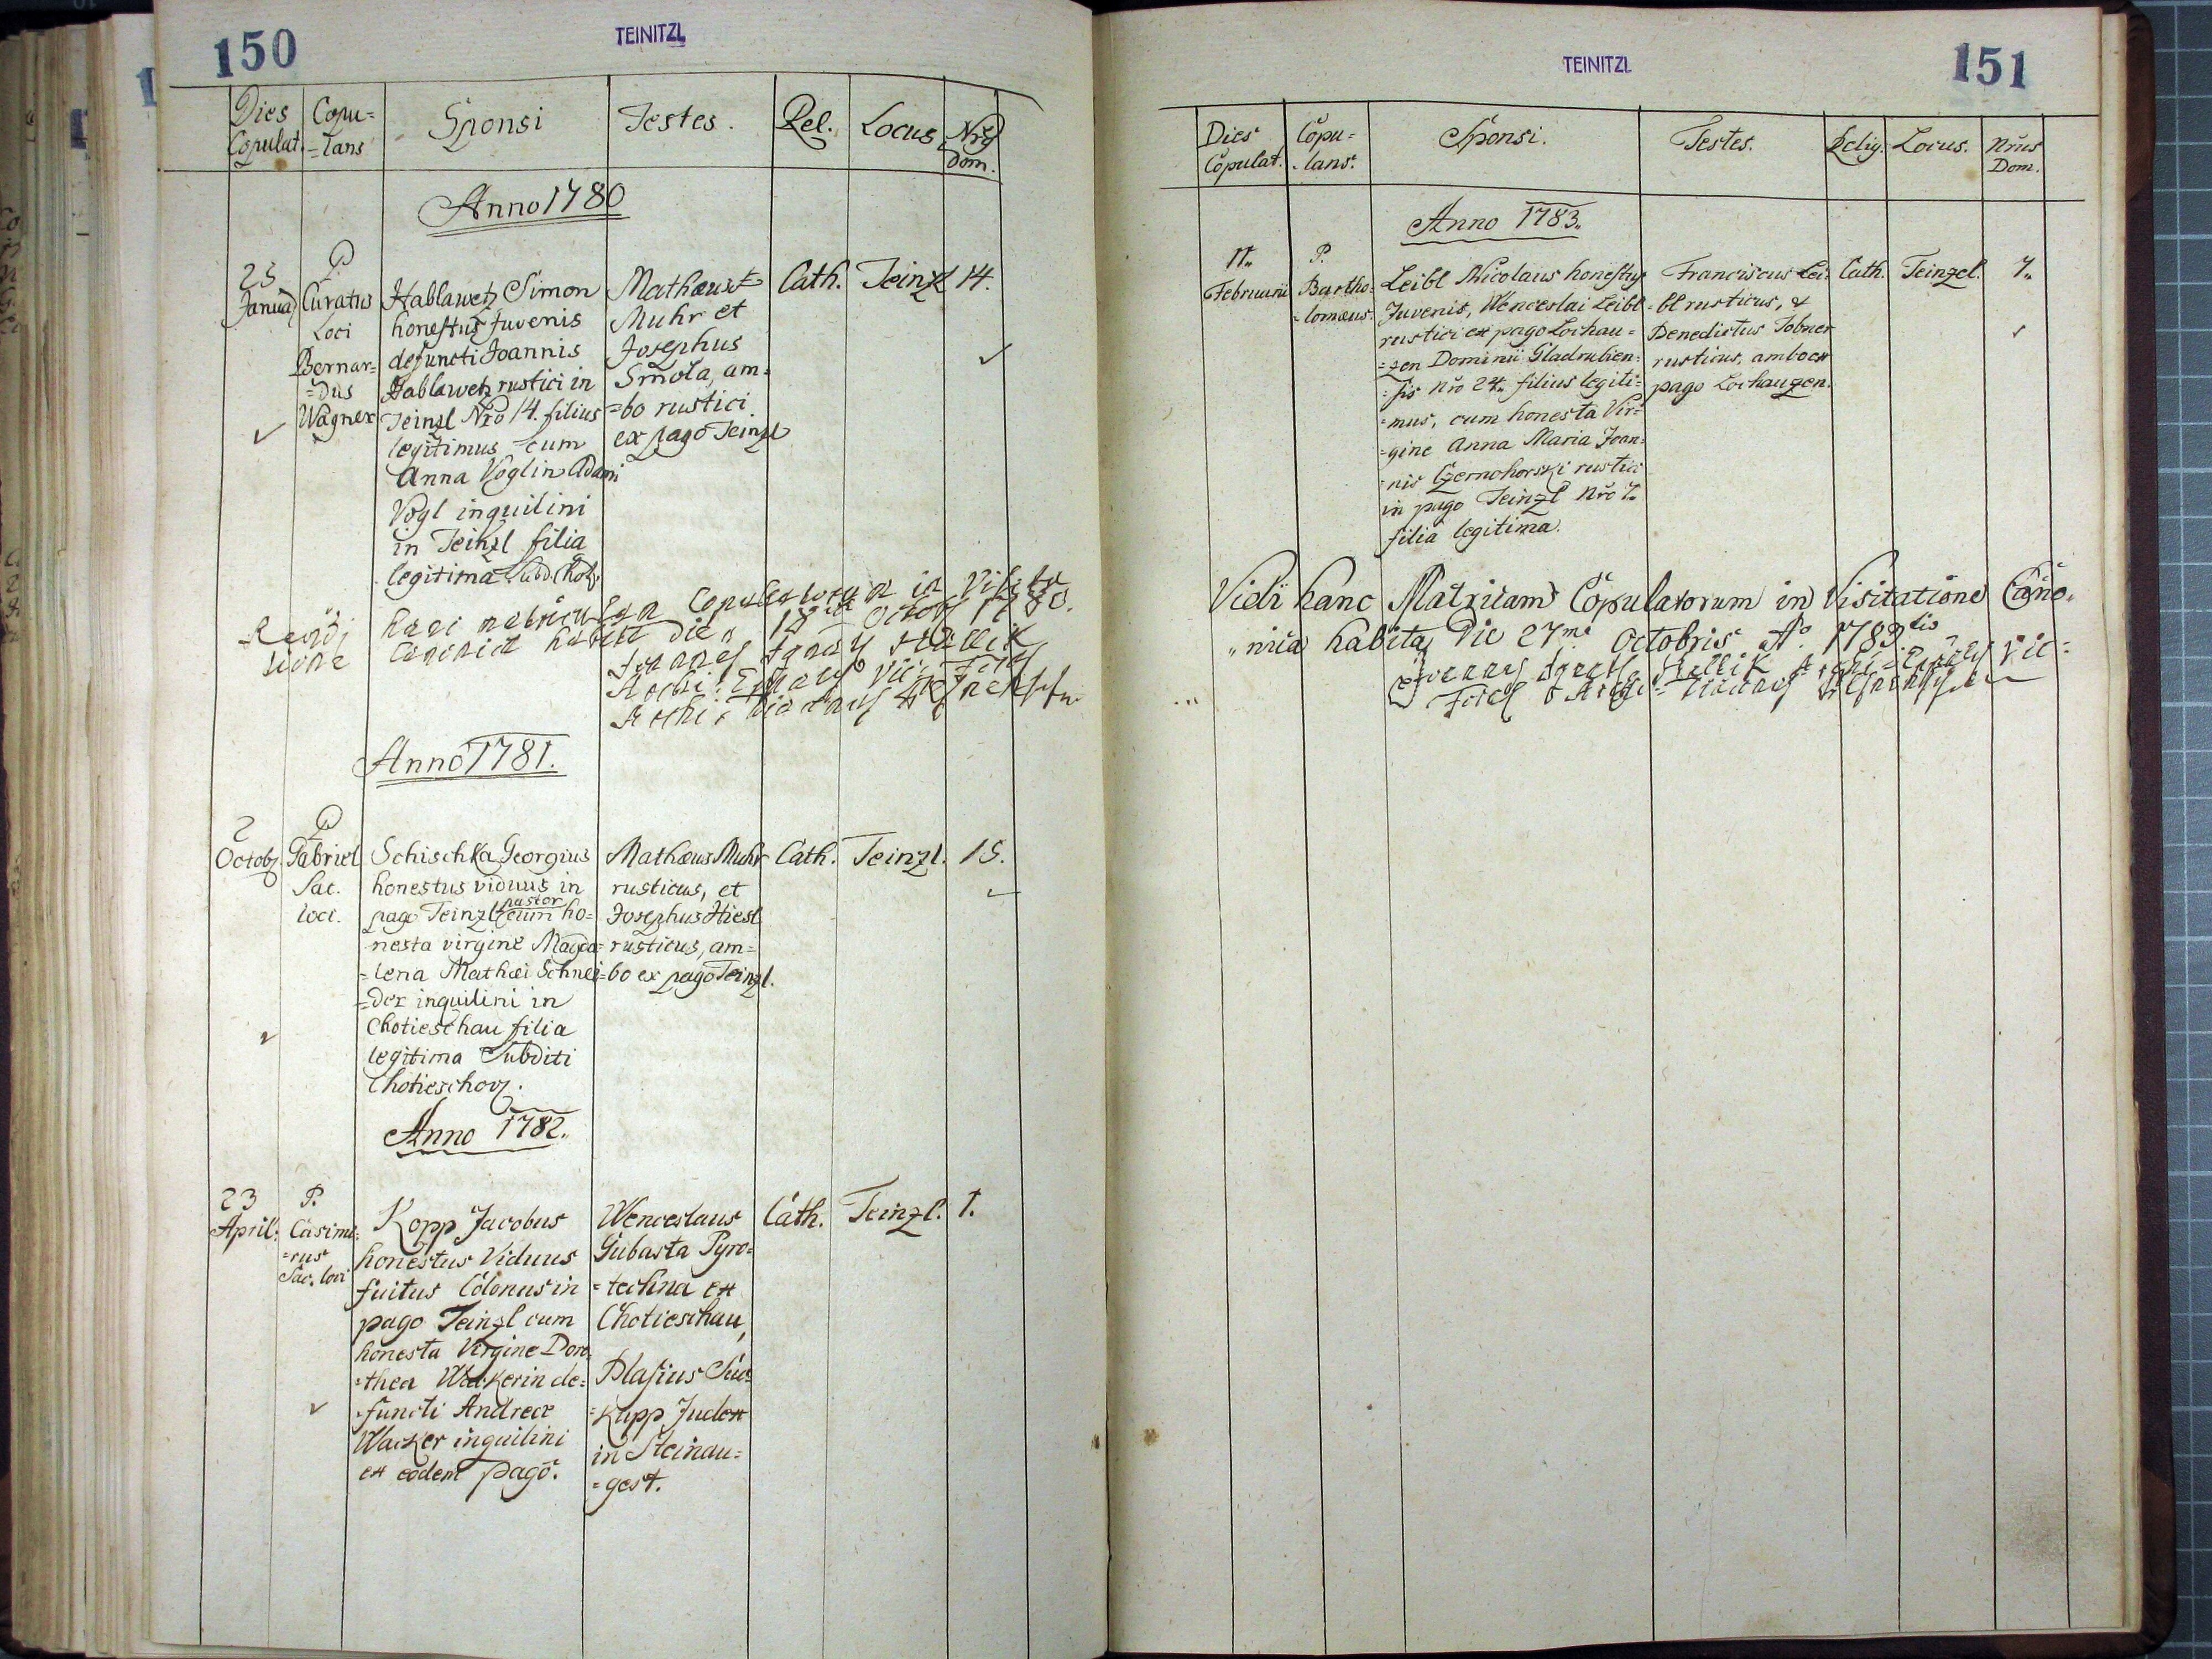 150
TEINITZL
Dies Copulat.
Copu=
=lans
Sponsi
Testes.
Rel.
Locus
Nrg
Dom.
Anno 1780
25
Januarÿ
P.
Curatus
Loci
Bernar=
=dus
Wagner
Hablawetz Simon
honestus Juvenis
defuncti Joannis
Hablawetz rustici in
Teinzl Nro 14. filius
legitimus cum
Anna Voglin Adami
Vogl inquilini
in Teinzl filia
legitima Subd. Chot.
Mathaeus
Muhr et
Josephus
Smola, am=
=bo rustici
ex pago Teinzl
Cath.
Teinzl
14.
hanc matriculam Copulatorum in Visita
tione Canonica habita die 18 Octob 1780.
Joannes Ignatz Stallik
Anno 1781.
2
Octob.
P.
Gabriel
Sac.
loci.
Schischka Georgius
honestus viduus in
pago Teinzl pastor cum ho=
nesta virgine Magda=
=lena Mathæi Schnei=
=der inquilini in
Chotieschau filia
legitima Subditi
Chotieschov.
Mathæus Muhr
rusticus, et
Josephus Hiesl
rusticus, am=
=bo ex pago Teinzl.
Cath.
Teinzl.
15.
Anno 1782.
23
April.
P.
Casimi=
=rus
Sac. loci
Kopp Jacobus
honestus Viduus
fuitus Colonus in
pago Teinzl cum
honesta Virgine Doro=
=thea Wackerin de=
=functi Andreæ
Wacker inquilini
ex eodem pago.
Wenceslaus
Gubasta Pyro=
=techna ex
Chotieschau,
Blasius Chu=
=kupp Judex
in Steinau=
=gest.
Cath.
Teinzl.
1.
TEINITZL
151
Dies
Copulat.
Copu=
=lans.
Sponsi.
Testes.
Relig.
Locus.
Nrus
Dom.
Anno 1783.
11.
Februarii
P.
Bartho=
=lomæus.
Leibl Nicolaus honestus
Juvenis, Wenceslai Leibl
rustici ex pago Lochau=
=zen Dominii Gladruben=
=sis Nro 24. filius legiti=
=mus, cum honesta Vir=
=gine Anna Maria Joan=
=nis Czernohorski rustici
in pago Teinzl Nro 7.
filia legitima.
Franciscus Lei=
=bl rusticus, &
Benedictus Tobner
rusticus, ambo ex
pago Lochauzen.
Cath.
Teinzel.
7.
Vidi hanc Matricam Copulatorum in Visitatione Cano=
=nica habita Die 27ma Octobris Ao. 1783tio
Joannes Ignatz Stallik